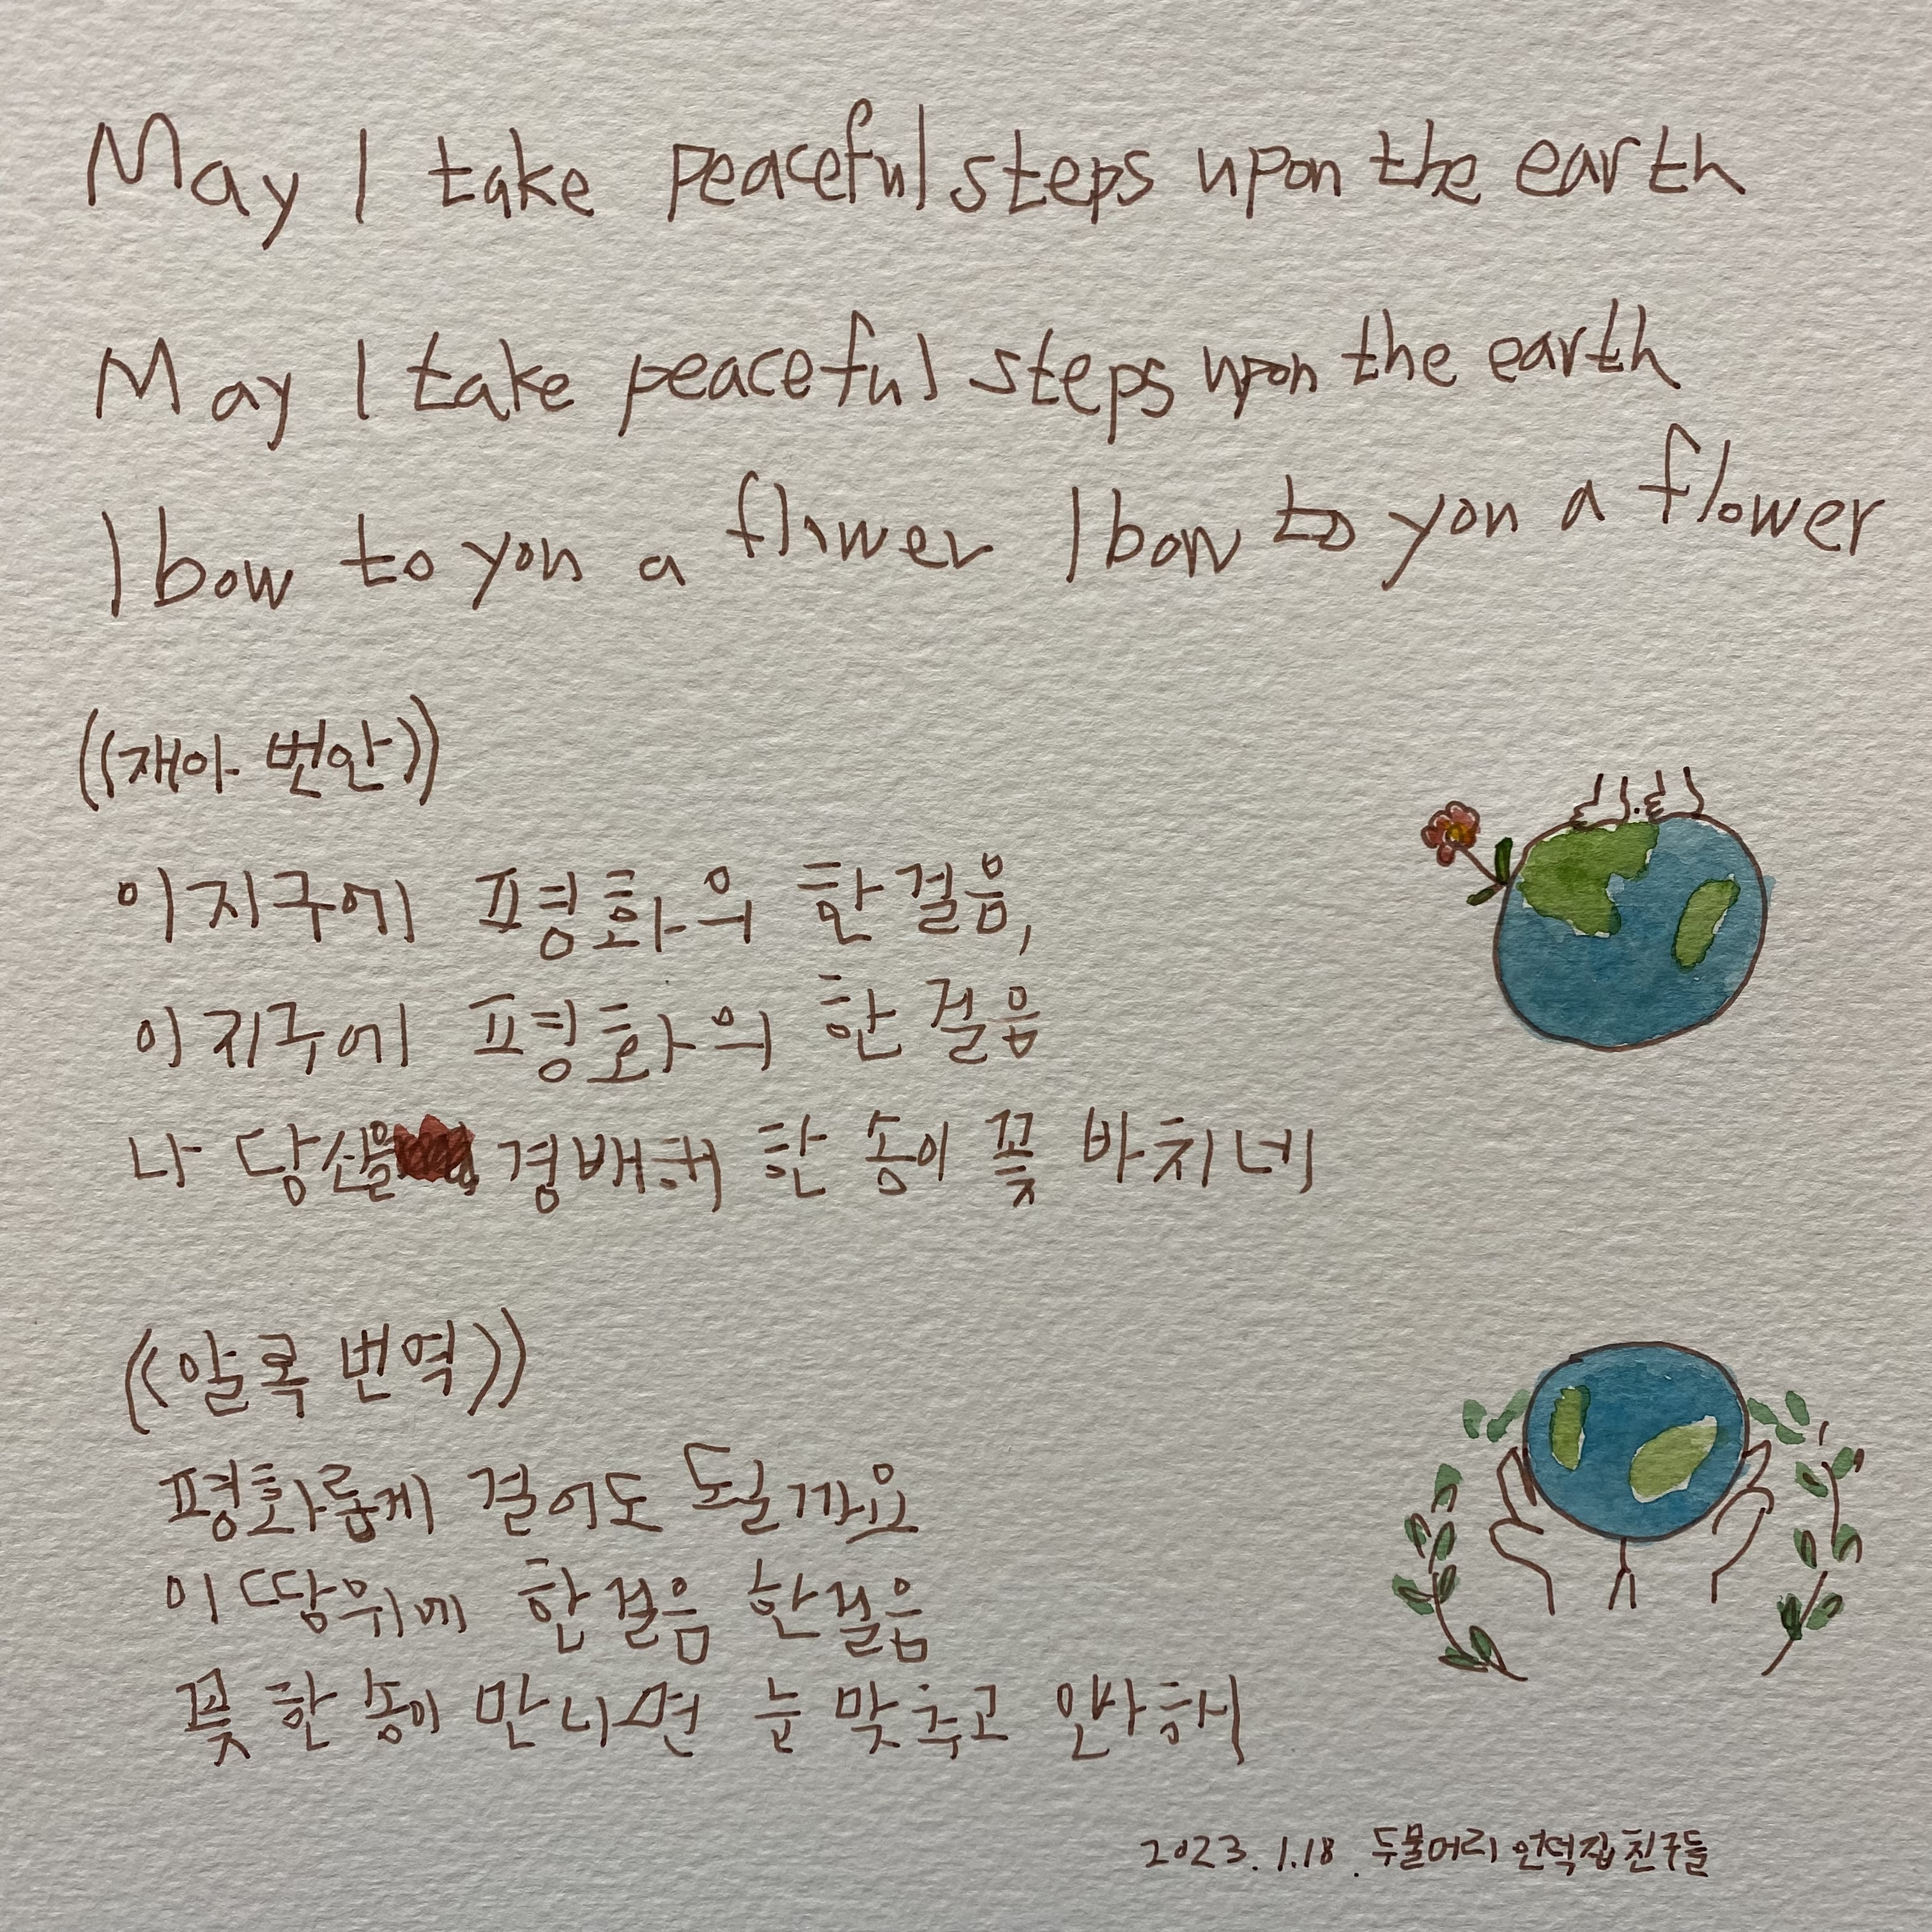 May I take peaceful steps upon the earth
May I take peaceful steps upon the earth
I bow to you a flower I bow to you a flower
((재아 번안))
이 지구에 평화의 한 걸음,
이 지구에 평화의 한 걸음
나 당신을 경배해 한 송이 꽃 바치네
((알록 번역))
평화롭게 걸어도 될까요
이 땅위에 한걸음 한걸음
꽃 한 송이 만나면 눈 맞추고 인사해
2023. 1.18. 두물머리 언덕집 친구들